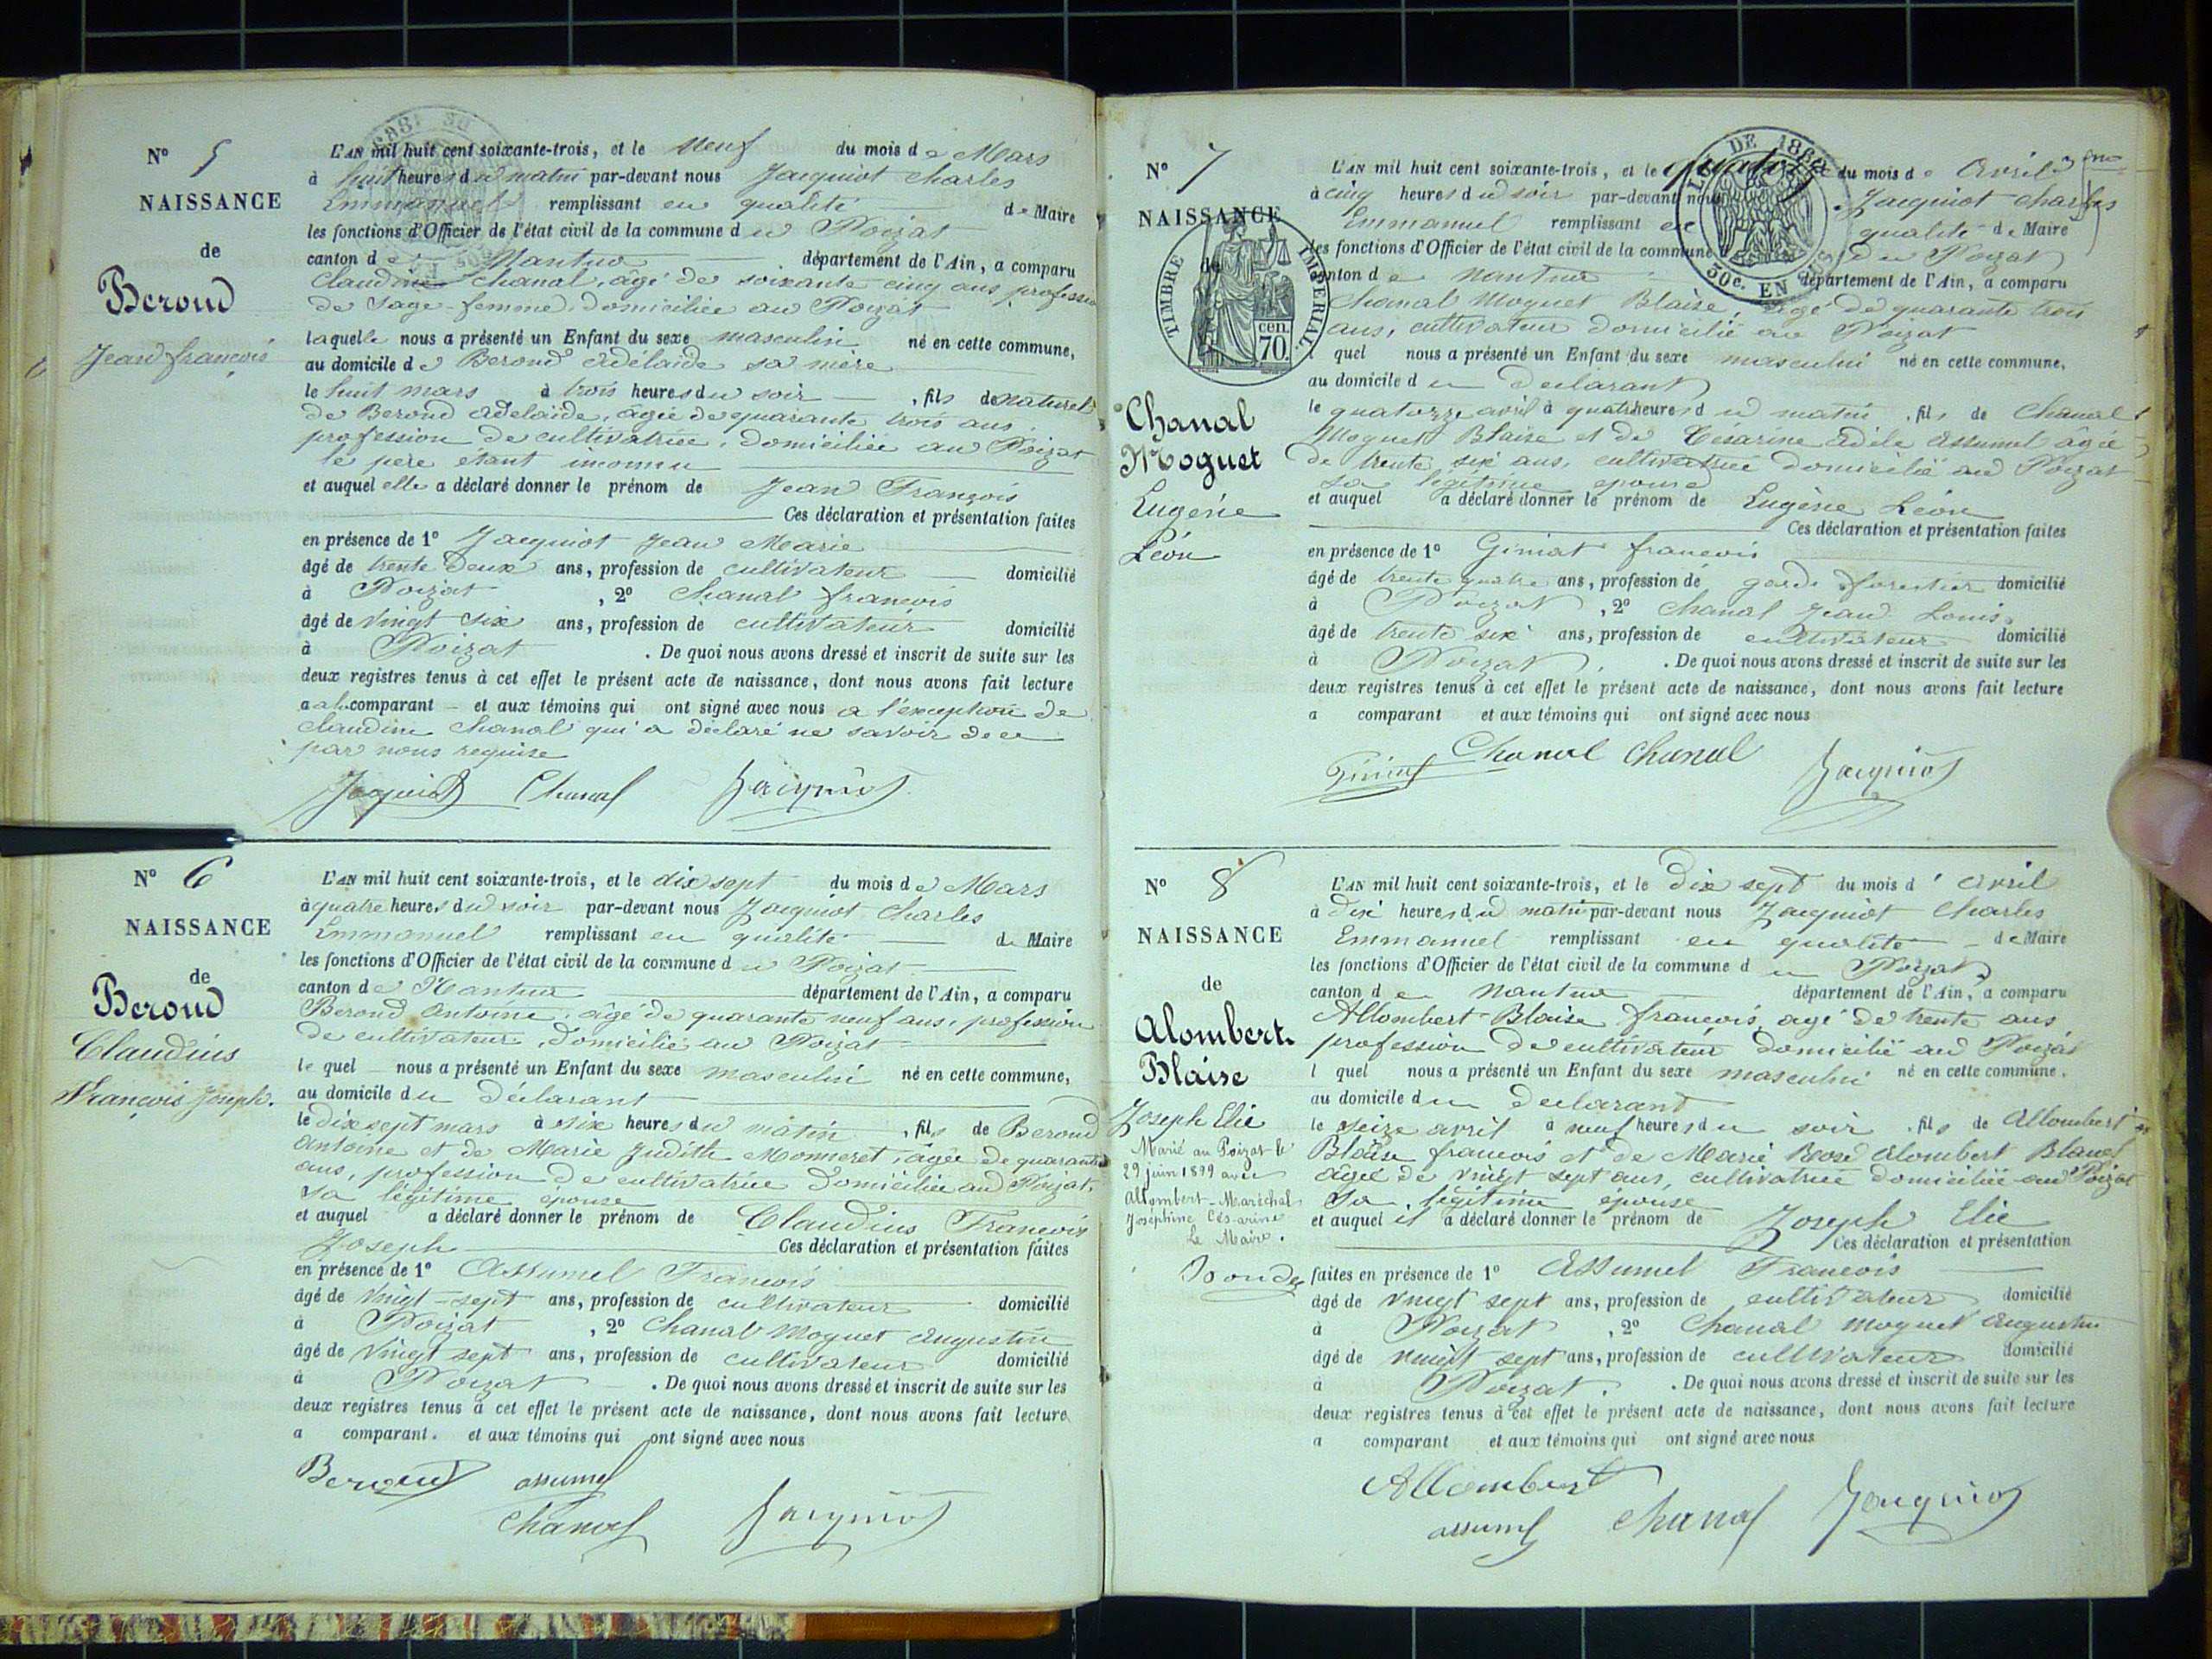 N° 5
NAISSANCE
de
Beroud
Jean françois
L'AN mil huit cent soixante-trois, et le neuf du mois de Mars
à huit heures du matin par-devant nous Jacquiot Charles
Emmanuel remplissant en qualité de Maire
les fonctions d'Officier de l'état civil de la commune du Poizat
canton de Nantua département de l'Ain, a comparu
Claudine Chanal, âgé de soixante cinq ans, profession
de Sage-femme, domiciliée au Poizat
laquelle nous a présenté un Enfant du sexe masculin né en cette commune,
au domicile de Beroud Adélaïde sa mère
le huit mars à trois heures du soir, fils de naturel
de Beroud Adélaïde, âgée de quarante trois ans,
profession de cultivatrice, domiciliée au Poizat
le père étant inconnu
et auquel elle a déclaré donner le prénom de Jean François
Ces déclaration et présentation faites
en présence de 1° Jacquiot Jean Marie
âgé de trente deux ans, profession de cultivateur domicilié
à Poizat, 2° Chanal françois
âgé de vingt six ans, profession de cultivateur domicilié
à Poizat. De quoi nous avons dressé et inscrit de suite sur les
deux registres tenus à cet effet le présent acte de naissance, dont nous avons fait lecture
a la comparant et aux témoins qui ont signé avec nous a l'exception de
Claudine Chanal qui a déclaré ne savoir de ce
par nous requise
Jacquiot Chanal Jacquiot
N° 6
NAISSANCE
de
Beroud
Claudius
François Joseph.
L'AN mil huit cent soixante-trois, et le dix sept du mois de Mars
à quatre heures du soir par-devant nous Jacquiot Charles
Emmanuel remplissant en qualité de Maire
les fonctions d'Officier de l'état civil de la commune du Poizat
canton de Nantua département de l'Ain, a comparu
Beroud Antoine, âgé de quarante neuf ans, profession
de cultivateur, domicilié au Poizat
le quel nous a présenté un Enfant du sexe masculin né en cette commune,
au domicile du déclarant
le dix sept mars à six heures du matin, fils de Beroud
Antoine et de Marie Judith Monneret, âgée de quarante
ans, profession de cultivatrice domiciliée au Poizat,
sa légitime épouse
et auquel a déclaré donner le prénom de Claudius François
Joseph Ces déclaration et présentation faites
en présence de 1° Assumel François
âgé de vingt-sept ans, profession de cultivateur domicilié
à Poizat, 2° Chanal Moguet Augustin
âgé de vingt sept ans, profession de cultivateur domicilié
à Poizat. De quoi nous avons dressé et inscrit de suite sur les
deux registres tenus à cet effet le présent acte de naissance, dont nous avons fait lecture
a comparant. et aux témoins qui ont signé avec nous
Beroud assumel
Chanal Jacquiot
N° 7
NAISSANCE
de
TIMBRE IMPERIAL
70 cen.
Chanal
Moguet
Eugène
Léon
L'AN mil huit cent soixante-trois, et le quatorze du mois d'Avril
à cinq heures du soir par-devant nous Jacquiot Charles
Emmanuel remplissant en qualité de Maire
les fonctions d'Officier de l'état civil de la commune du Poizat
canton de Nantua département de l'Ain, a comparu
Chanal Moguet Blaise, âgé de quarante trois
ans, cultivateur domicilié au Poizat
l quel nous a présenté un Enfant du sexe masculin né en cette commune,
au domicile du déclarant
le quatorze avril à quatre heures du matin, fils de Chanal
Moguet Blaise et de Césarine Adèle Assumel âgée
de trente six ans, cultivatrice domicilié au Poizat
sa légitime épouse
et auquel a déclaré donner le prénom de Eugène Léon
Ces déclaration et présentation faites
en présence de 1° Giniat françois
âgé de trente quatre ans, profession de garde forestier domicilié
à Poizat, 2° Chanal Jean Louis
âgé de trente six ans, profession de cultivateur domicilié
à Poizat. De quoi nous avons dressé et inscrit de suite sur les
deux registres tenus à cet effet le présent acte de naissance, dont nous avons fait lecture
a comparant et aux témoins qui ont signé avec nous
Chanal Chanal Jacquiot
N° 8
NAISSANCE
de
Alombert.
Blaise
Joseph Elie
Marié au Poizat le
29 juin 1899 avec
Allombert-Maréchal
Joséphine Césarine
Le Maire.
L'AN mil huit cent soixante-trois, et le dix sept du mois d'avril
à dix heures du matin par-devant nous Jacquiot Charles
Emmanuel remplissant en qualité de Maire
les fonctions d'Officier de l'état civil de la commune du Poizat
canton de Nantua département de l'Ain, a comparu
Allombert-Blaise françois, agé de trente ans
profession de cultivateur domicilié au Poizat
l quel nous a présenté un Enfant du sexe masculin né en cette commune.
au domicile du déclarant
le seize avril à neuf heures du soir. fils de Allombert
Blaise françois et de Marie Rose Alombert Blanc
âgée de vingt sept ans, cultivatrice domiciliée au Poizat
sa légitime épouse
et auquel il a déclaré donner le prénom de Joseph Elie
Ces déclaration et présentation
faites en présence de 1° Assumel François
âgé de vingt sept ans, profession de cultivateur domicilié
à Poizat, 2° Chanal Moguet Augustin
âgé de vingt sept ans, profession de cultivateur domicilié
à Poizat. De quoi nous avons dressé et inscrit de suite sur les
deux registres tenus à cet effet le présent acte de naissance, dont nous avons fait lecture
a comparant et aux témoins qui ont signé avec nous
Allombert
assumel Chanal Jacquiot